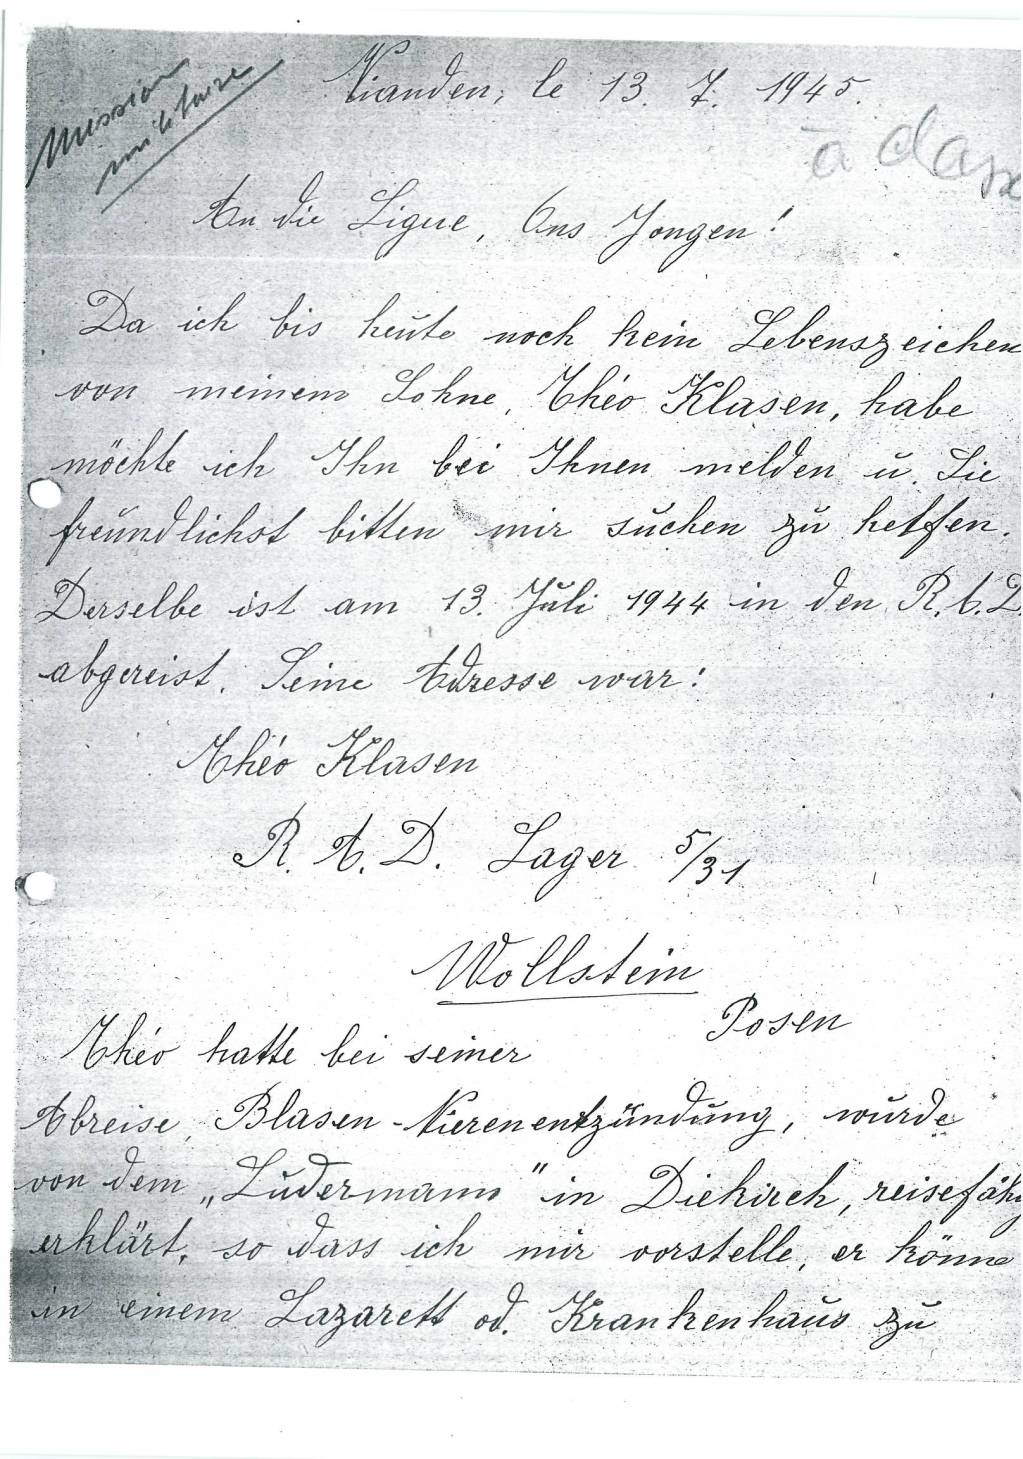 Mission
militaire
Vianden, le 13. 7. 1945.
à
An die Ligue, Ons Jongen!
Da ich bis heute noch kein Lebenszeichen
von meinem Sohne, Théo Klasen, habe
möchte ich Ihn bei Ihnen melden u. Sie
freundlichst bitten mir suchen zu helfen.
Derselbe ist am 13. Juli 1944 in den R.A.D.
abgereist. Seine Adresse war:
Théo Klasen
R. A. D. Lager 5/31
Wollstein
Posen
Théo hatte bei seiner
Abreise, Blasen-Nierenentzündung, wurde
von dem „Ludermann" in Diekirch, reisefähig
erklärt, so dass ich mir vorstelle, er könne
in einem Lazarett od. Krankenhaus zu